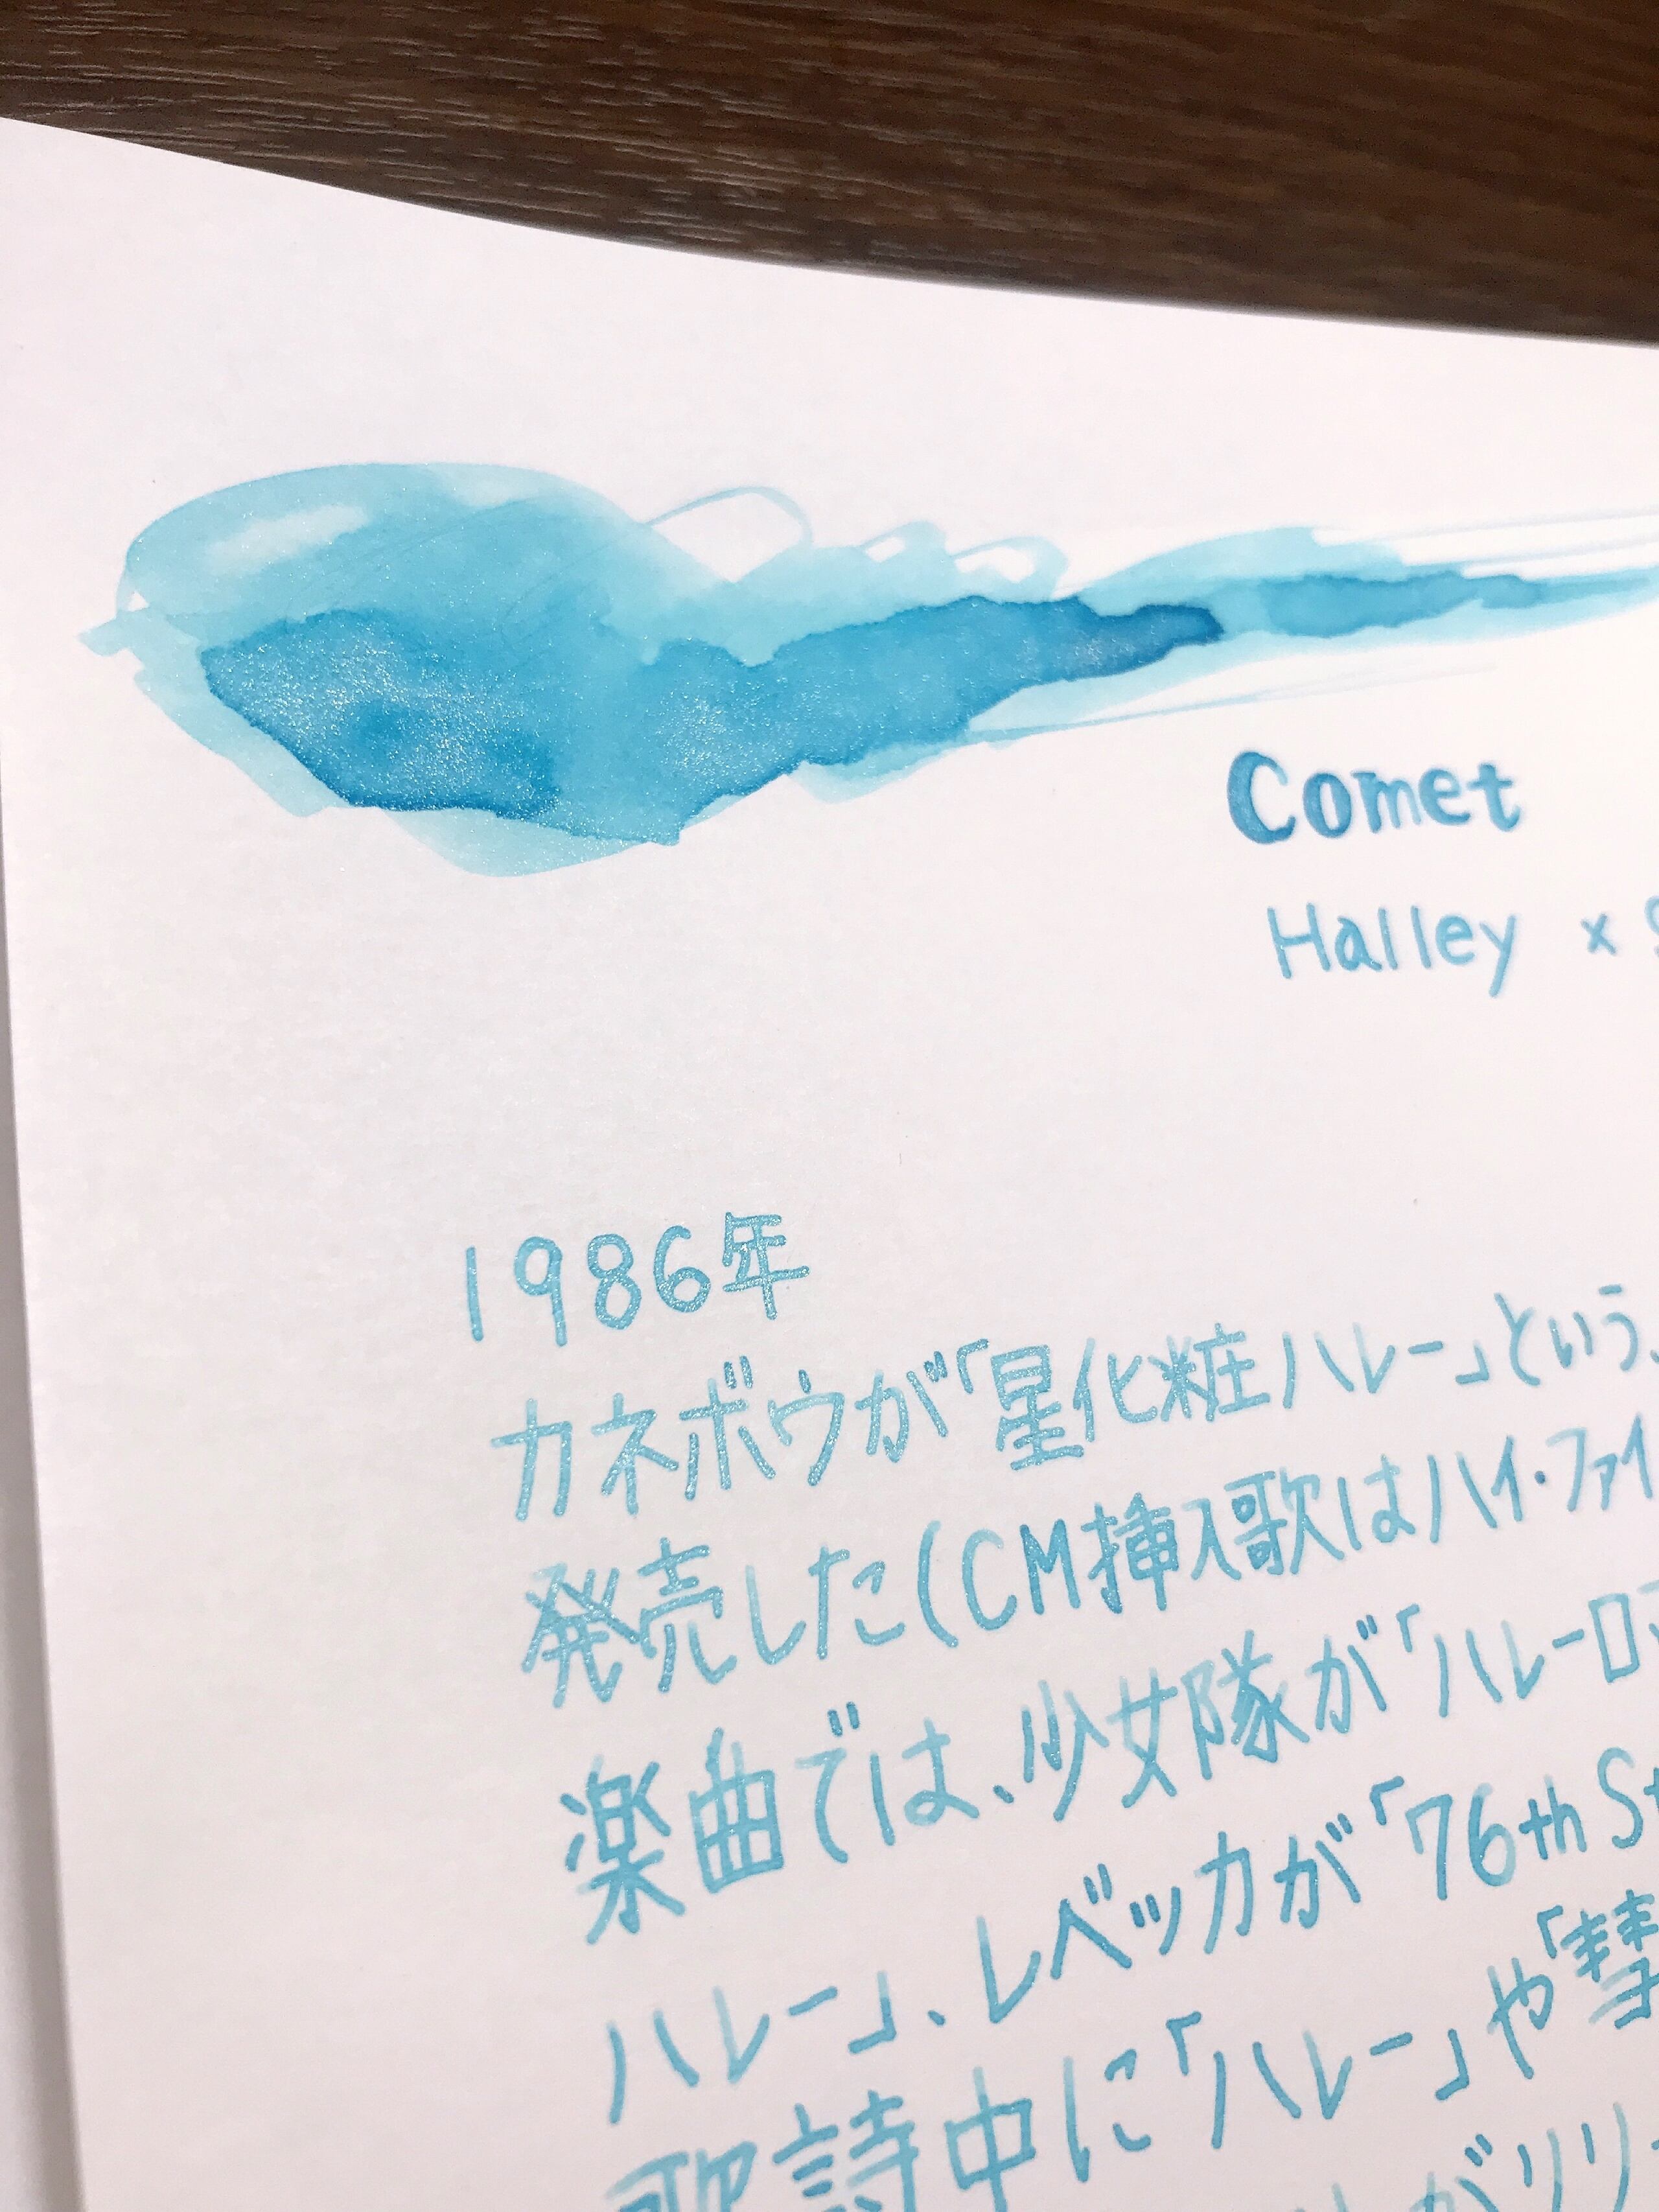 Comet
Halley ×
1986年
カネボウが「星化粧ハレー」という
発売した(CM挿入歌はハイ・ファイ
楽曲では、少女隊が「ハレーロマ
ハレー」、レベッカが「76th St
歌詩中に「ハレー」や「彗
がリリ